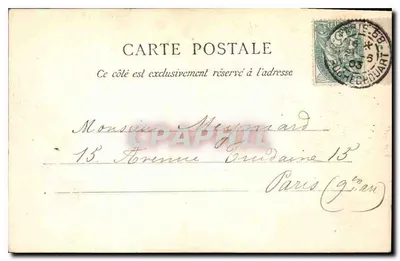 CARTE POSTALE
Ce côté est exclusivement réservé à l'adresse
Monsieur Meynard
15 Avenue Trudaine 15
Paris (9me arr)